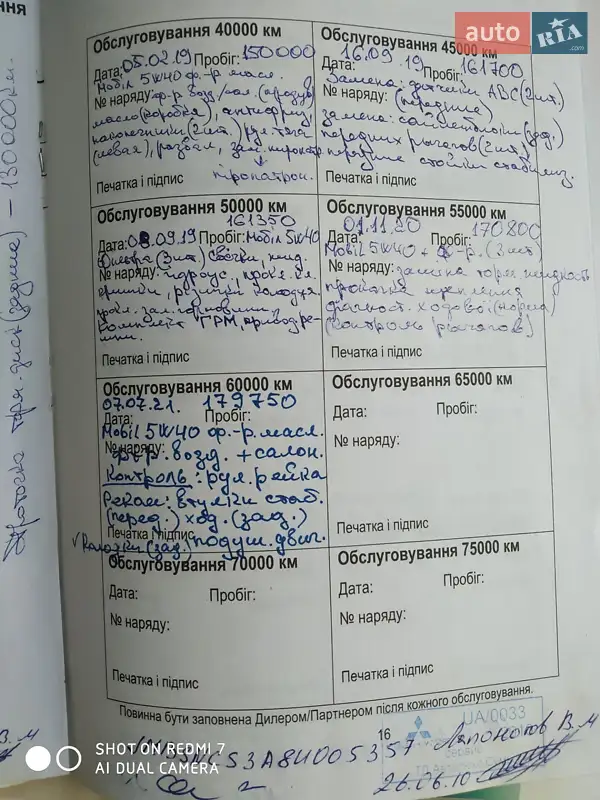 ння
auto RIA .com
Обслуговування 40000 км
Дата: 05.02.19 Пробіг: 150000
Мобіл 5W40 ф.-р масл.
№ наряду: ф-р возд./сал.
масло (коробка), антифриз,
наконечники (2 шт.) рул. тяга
(левая), развал,
Печатка і підпис
Обслуговування 45000 км
16.09.19 161700
Дата: Пробіг:
Замена: датчики АВС (2 шт.)
№ наряду: (передина)
замена: сайлетблоки (зад.)
передних рычагов (2 шт.)
передние стойки стабилиз.
Печатка і підпис
Обслуговування 50000 км
161350
Дата: 08.09.19 Пробіг: Мобіл 5W40
(3 шт.) свечки, конд.
№ наряду: гидроус.,
комплект ГРМ,
Печатка і підпис
Обслуговування 55000 км
01.11.20 170800
Дата: Пробіг:
Мобіл 5W40 + ф.-р. (3 шт)
№ наряду: замина торм. жидкость
діагност. ходової (норма)
(контроль рычагов)
Печатка і підпис
Обслуговування 60000 км
07.07.21. 179750
Дата: Пробіг:
Мобіл 5W40 ф.-р. масл.
№ наряду:
ф-р. возд. + салон.
Контроль: рул. рейка
Рекам: втулки стаб.
(перед.) х од. (зад.)
Печатка і підпис
V Колодки (зад.) подуш. двиг.
Обслуговування 65000 км
Дата: Пробіг:
№ наряду:
Печатка і підпис
Обслуговування 70000 км
Дата: Пробіг:
№ наряду:
Печатка і підпис
Обслуговування 75000 км
Дата: Пробіг:
№ наряду:
Печатка і підпис
Повинна бути заповнена Дилером/Партнером після кожного обслуговування.
16
UA/0033
В. М
26.06.10
Проточка торм. диск (задние) – 130000 км.
SHOT ON REDMI 7
AI DUAL CAMERA